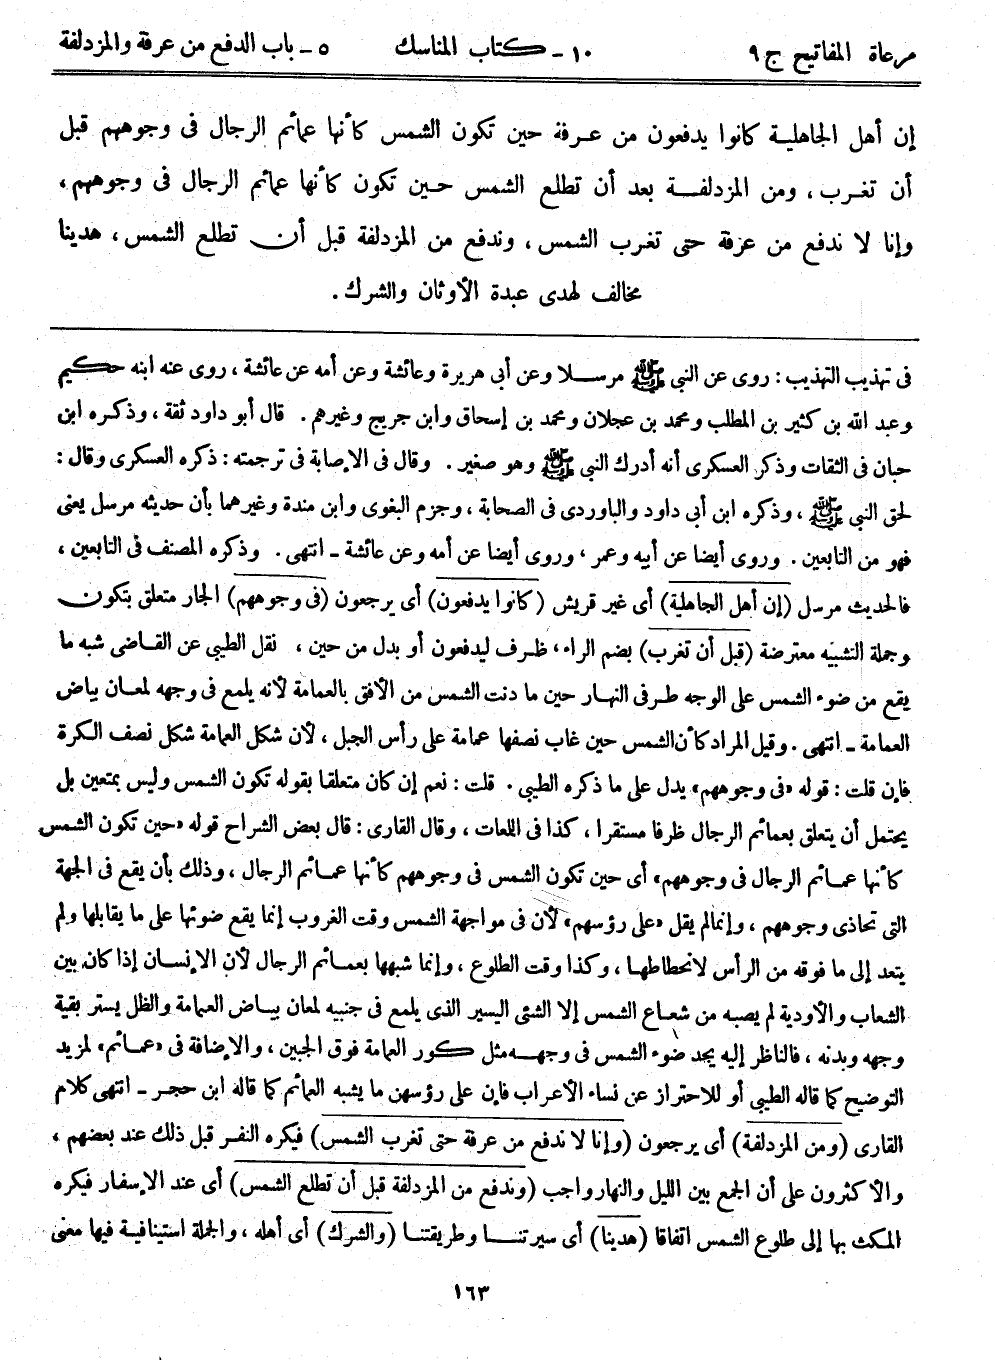 مرعاة المفاتيح ج ٩ ١٠ - كتاب المناسك ٥ - باب الدفع من عرفة والمزدلفة
إن أهل الجاهلية كانوا يدفعون من عرفة حين تكون الشمس كأنها عمائم الرجال فى وجوههم قبل
أن تغرب ، ومن المزدلفة بعد أن تطلع الشمس حين تكون كأنها عمائم الرجال فى وجوههم ،
وإنا لا ندفع من عرفة حتى تغرب الشمس ، وندفع من المزدلفة قبل أن تطلع الشمس ، هدينا
مخالف لهدى عبدة الأوثان والشرك .
فى تهذيب التهذيب : روى عن النبى ﷺ مرسلا وعن أبى هريرة وعائشة وعن أمه عن عائشة ، روى عنه ابنه حكيم
وعبد الله بن كثير بن المطلب ومحمد بن عجلان ومحمد بن إسحاق وابن جريج وغيرهم . قال أبو داود ثقة ، وذكره ابن
حبان فى الثقات وذكر العسكرى أنه أدرك النبى ﷺ وهو صغير . وقال فى الإصابة فى ترجمته : ذكره العسكرى وقال :
لحق النبى ﷺ ، وذكره ابن أبى داود والباوردى فى الصحابة ، وجزم البغوى وابن مندة وغيرهما بأن حديثه مرسل يعنى
فهو من التابعين . وروى أيضا عن أبيه وعمر ، وروى أيضا عن أمه وعن عائشة - انتهى . وذكره المصنف فى التابعين ،
فالحديث مرسل (إن أهل الجاهلية) أى غير قريش (كانوا يدفعون) أى يرجعون (فى وجوههم) الجار متعلق بتكون
وجملة التشبيه معترضة (قبل أن تغرب) بضم الراء ، ظرف ليدفعون أو بدل من حين ، نقل الطيبى عن القاضى شبه ما
يقع من ضوء الشمس على الوجه طرفى النهار حين ما دنت الشمس من الأفق بالعمامة لأنه يلمع فى وجهه لمعان بياض
العمامة - انتهى . وقيل المراد كأن الشمس حين غاب نصفها عمامة على رأس الجبل ، لأن شكل العمامة شكل نصف الكرة
فإن قلت : قوله «فى وجوههم» يدل على ما ذكره الطيبى . قلت : نعم إن كان متعلقا بقوله تكون الشمس وليس بمتعين بل
يحتمل أن يتعلق بعمائم الرجال ظرفا مستقرا ، كذا فى اللمعات ، وقال القارى : قال بعض الشراح قوله «حين تكون الشمس
كأنها عمائم الرجال فى وجوههم» أى حين تكون الشمس فى وجوههم كأنها عمائم الرجال ، وذلك بأن يقع فى الجهة
التى تحاذى وجوههم ، وإنما لم يقل «على رؤسهم» لأن فى مواجهة الشمس وقت الغروب إنما يقع ضوئها على ما يقابلها ولم
يتعد إلى ما فوقه من الرأس لانحطاطها ، وكذا وقت الطلوع ، وإنما شبهها بعمائم الرجال لأن الإنسان إذا كان بين
الشعاب والأودية لم يصبه من شعاع الشمس إلا الشئى اليسير الذى يلمع فى جنبيه لمعان بياض العمامة والظل يستر بقية
وجهه وبدنه ، فالناظر إليه يجد ضوء الشمس فى وجهه مثل كور العمامة فوق الجبين ، والإضافة فى «عمائم» لمزيد
التوضيح كما قاله الطيبى أو للاحتراز عن نساء الأعراب فإن على رؤسهن ما يشبه العمائم كما قاله ابن حجر - انتهى كلام
القارى (ومن المزدلفة) أى يرجعون (وإنا لا ندفع من عرفة حتى تغرب الشمس) فيكره النفر قبل ذلك عند بعضهم ،
والأكثرون على أن الجمع بين الليل والنهار واجب (وندفع من المزدلفة قبل أن تطلع الشمس) أى عند الإسفار فيكره
المكث بها إلى طلوع الشمس اتفاقا (هدينا) أى سيرتنا وطريقتنا (والشرك) أى أهله ، والجملة استينافية فيها معنى
١٦٣